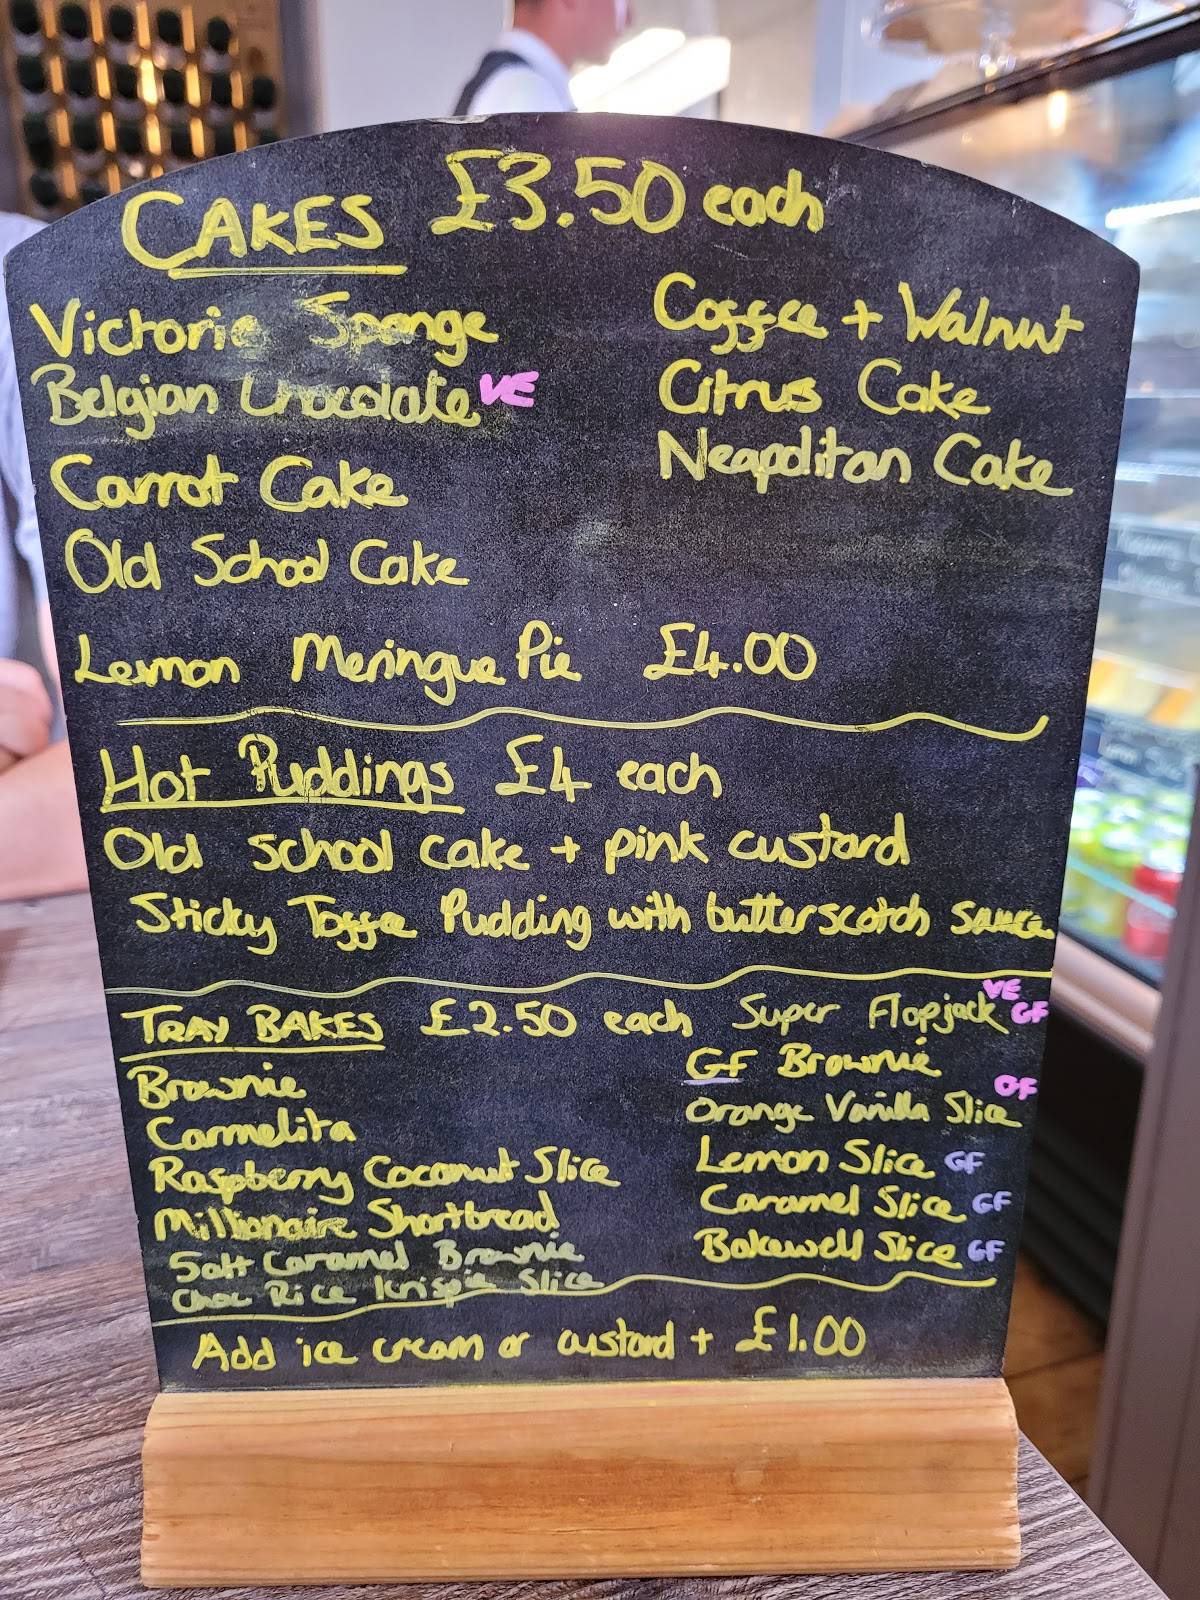 CAKES £3.50 each
Victoria Sponge
Belgian Chocolate VE
Carrot Cake
Old School Cake
Coffee + Walnut
Citrus Cake
Neapolitan Cake
Lemon Meringue Pie £4.00
Hot Puddings £4 each
Old school cake + pink custard
Sticky Toffee Pudding with butterscotch sauce
TRAY BAKES £2.50 each
Brownie
Carmelita
Raspberry Coconut Slice
Millionaire Shortbread
Salt Caramel Brownie
Choc Rice Krispie Slice
Super Flapjack VE GF
GF Brownie
Orange Vanilla Slice GF
Lemon Slice GF
Caramel Slice GF
Bakewell Slice GF
Add ice cream or custard + £1.00